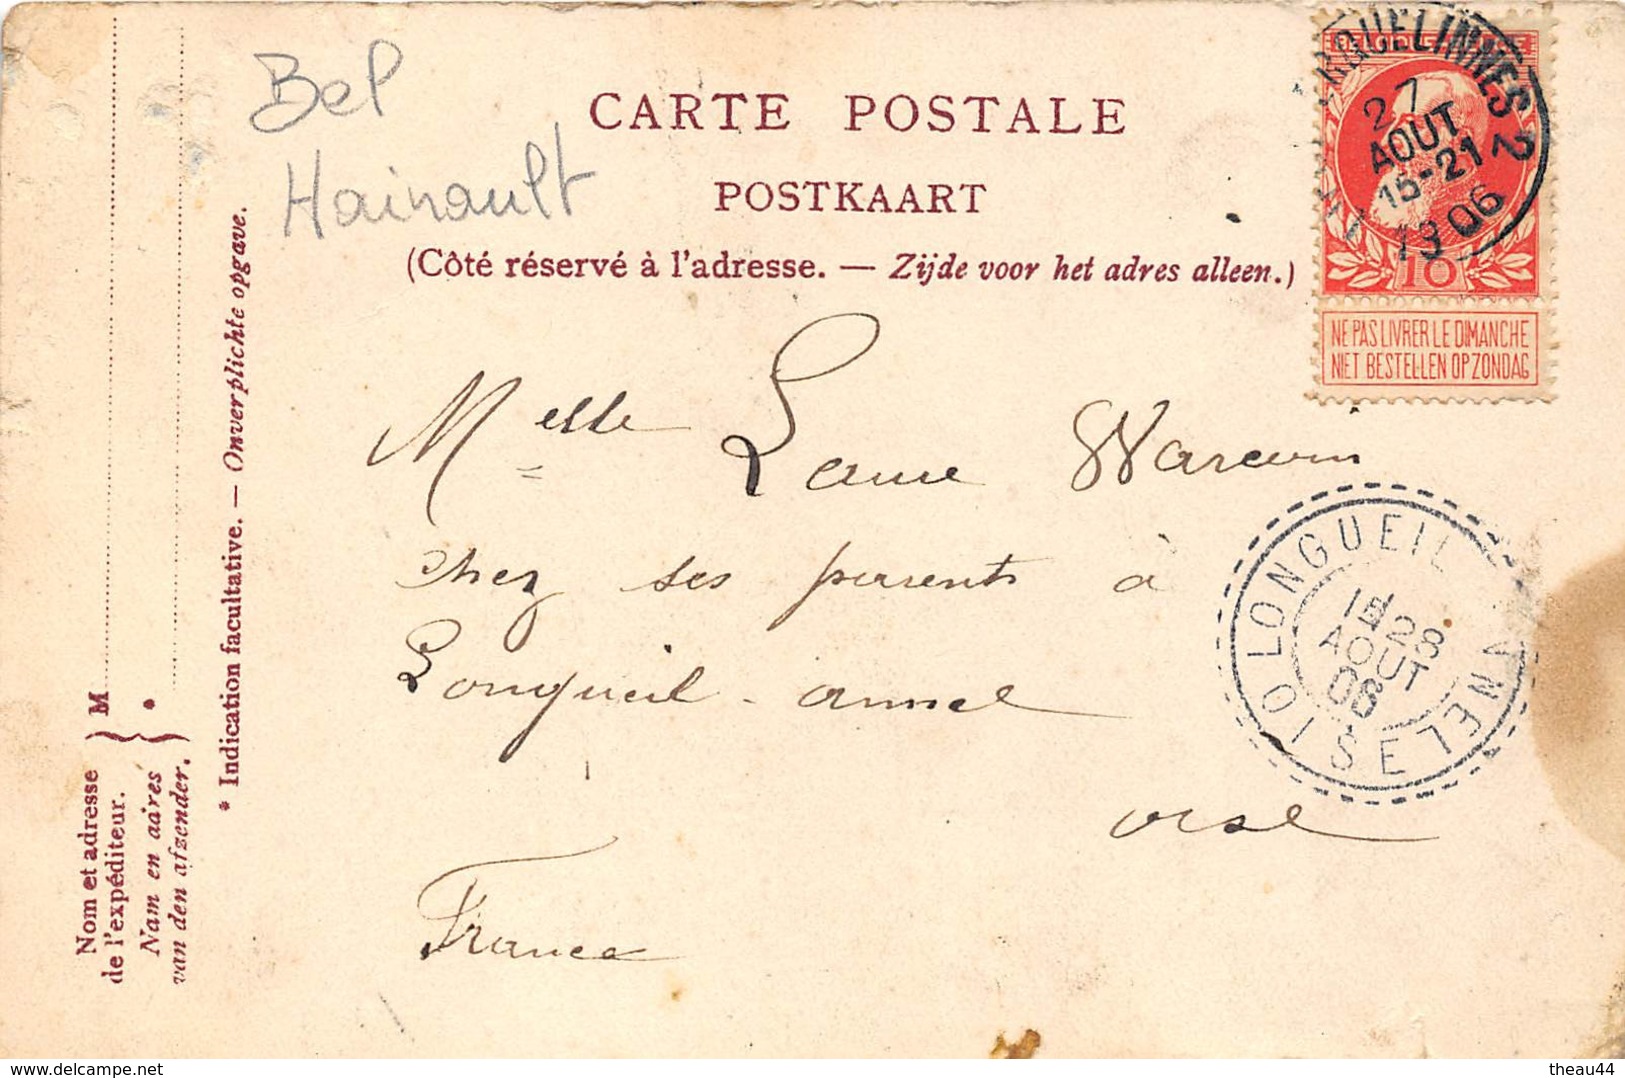 Bel
Hainault
CARTE POSTALE
POSTKAART
(Côté réservé à l'adresse. — Zijde voor het adres alleen.)
ERQUELINNES 2
27
AOUT
15-21
1906
BELGIQUE
10
NE PAS LIVRER LE DIMANCHE
NIET BESTELLEN OP ZONDAG
Melle Laure
chez ses parents à
Longueil-annel
oise
France
LONGUEIL ANNEL
OISE
28
AOUT
06
* Indication facultative. — Onverplichte opgave.
M
*
Nom et adresse
de l'expéditeur.
Nam en adres
van den afzender.
delcampe.net
theau44